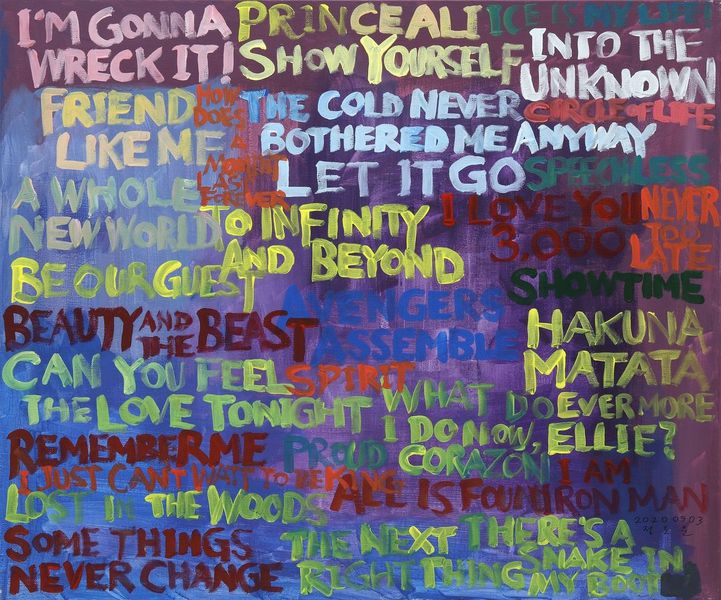 I'M GONNA
WRECK IT!
PRINCE ALI
SHOW YOURSELF
ICE IS MY LIFE!
INTO THE
UNKNOWN
FRIEND
LIKE ME
HOW
DOES
A
MOMENT
LAST
FOREVER
THE COLD NEVER
BOTHERED ME ANYWAY
CIRCLE OF LIFE
LET IT GO
SPEECHLESS
A WHOLE
NEW WORLD
TO INFINITY
AND BEYOND
I LOVE YOU
3,000
NEVER
TOO
LATE
BE OUR GUEST
SHOWTIME
BEAUTY AND THE BEAST
AVENGERS
ASSEMBLE
HAKUNA
MATATA
CAN YOU FEEL
THE LOVE TONIGHT
SPIRIT
WHAT DO
I DO NOW, ELLIE?
EVERMORE
REMEMBER ME
PROUD CORAZÓN
I JUST CAN'T WAIT TO BE KING
I AM
IRON MAN
ALL IS FOUND
LOST IN THE WOODS
20200503
SOME THINGS
NEVER CHANGE
THE NEXT
RIGHT THING
THERE'S A
SNAKE IN
MY BOOT